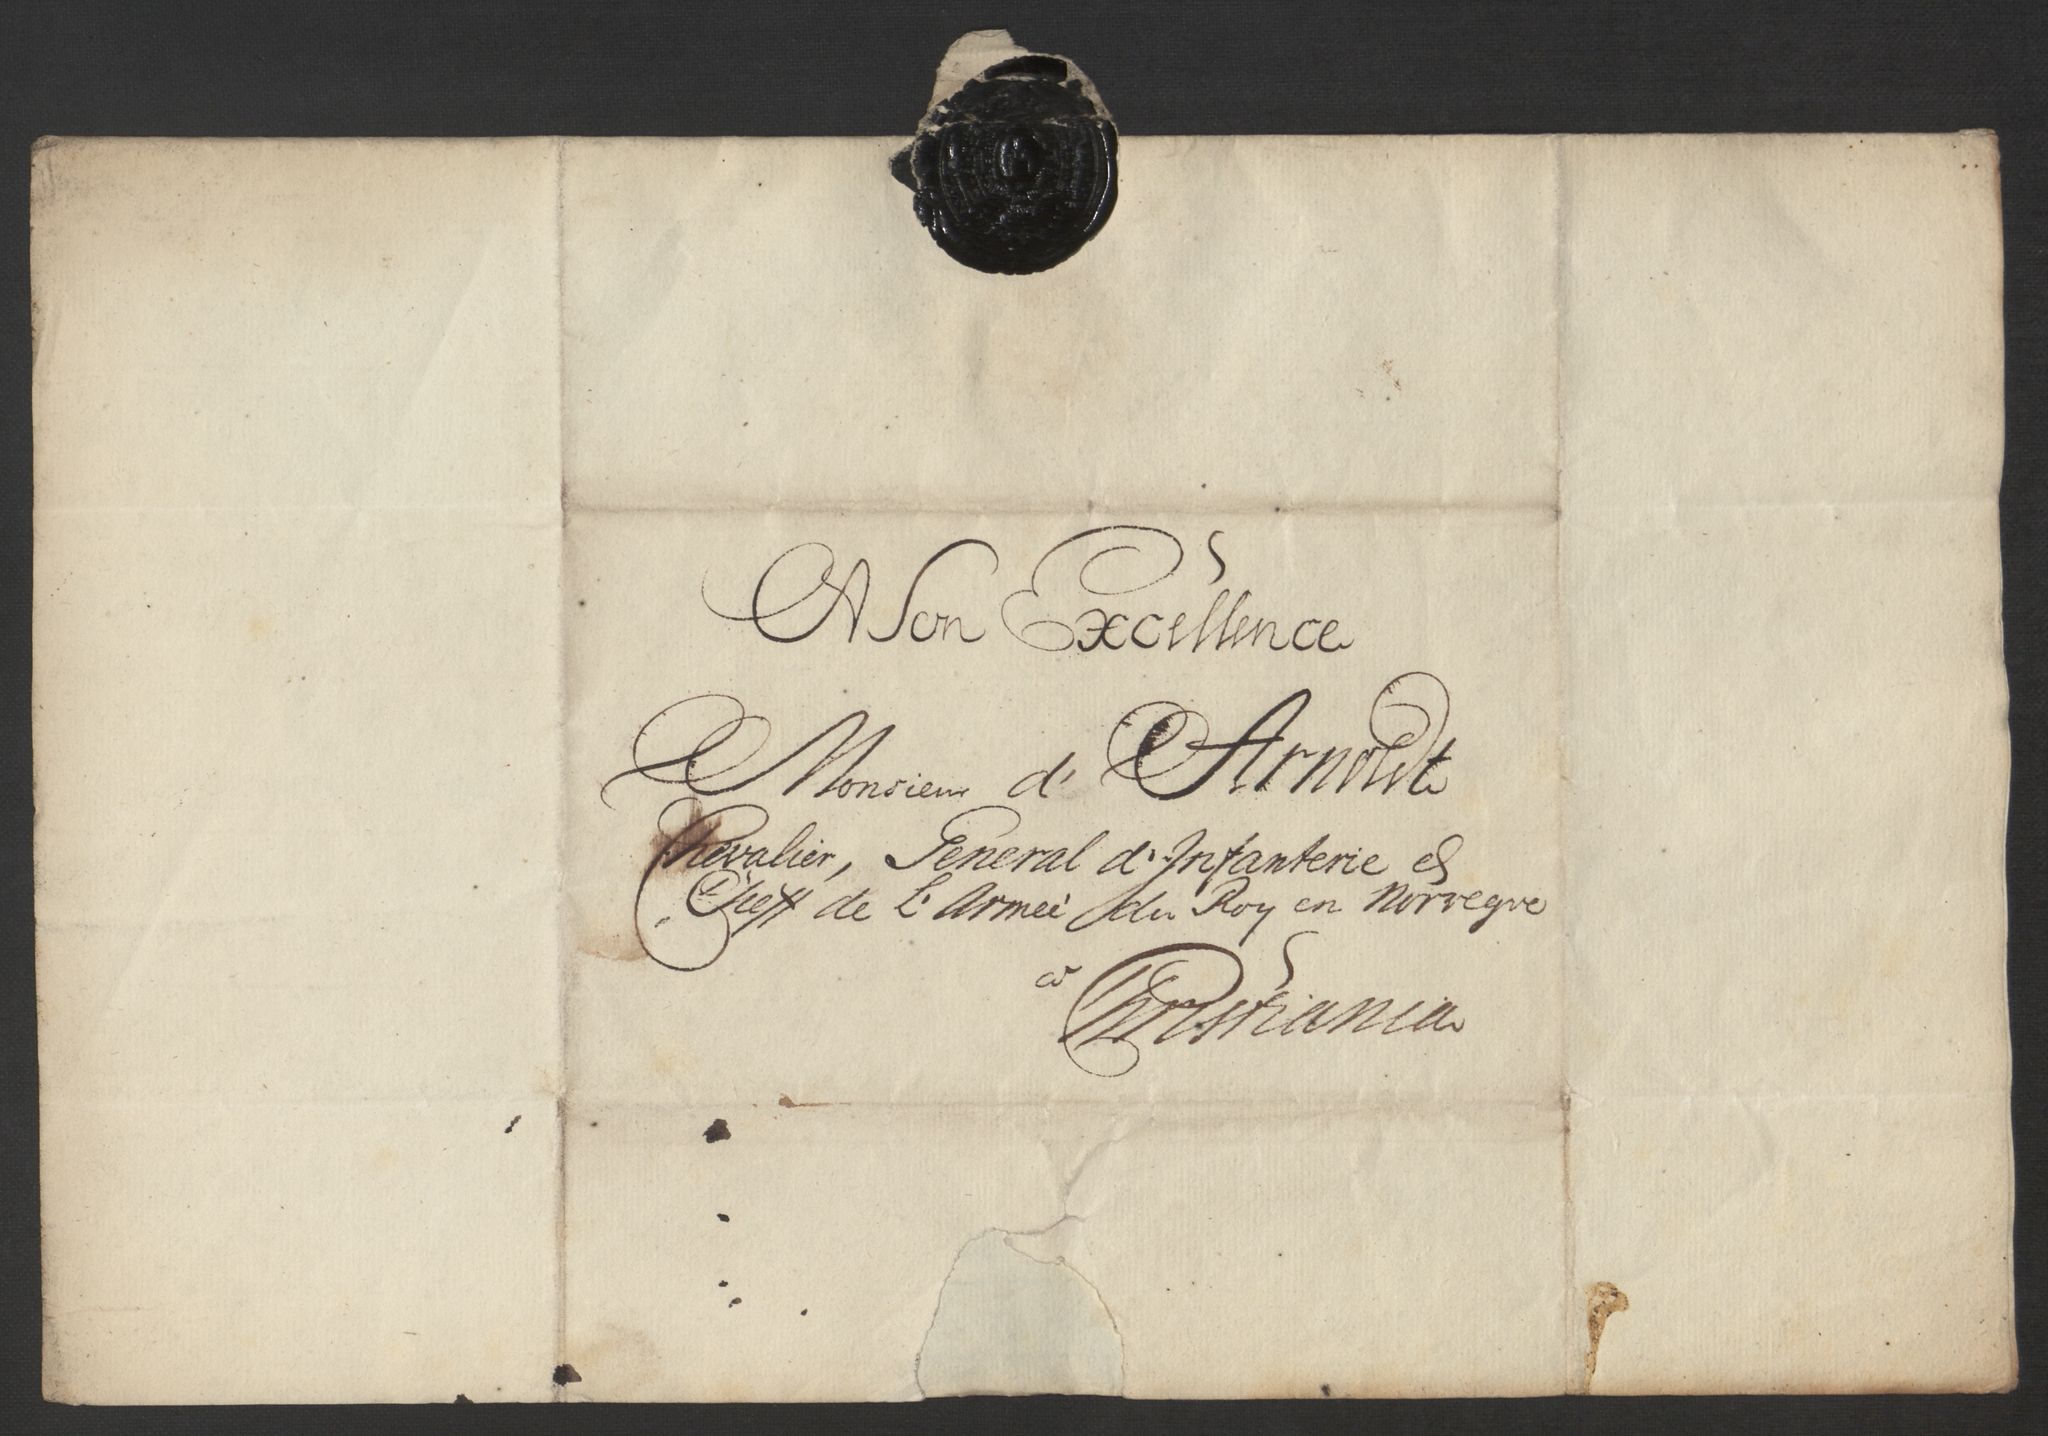 A Son Excellence
Monsieur d' Arnoldt
Chevalier, General d' Infanterie et
Cheff de L' Armeé du Roy en Norvegve
a Christiania